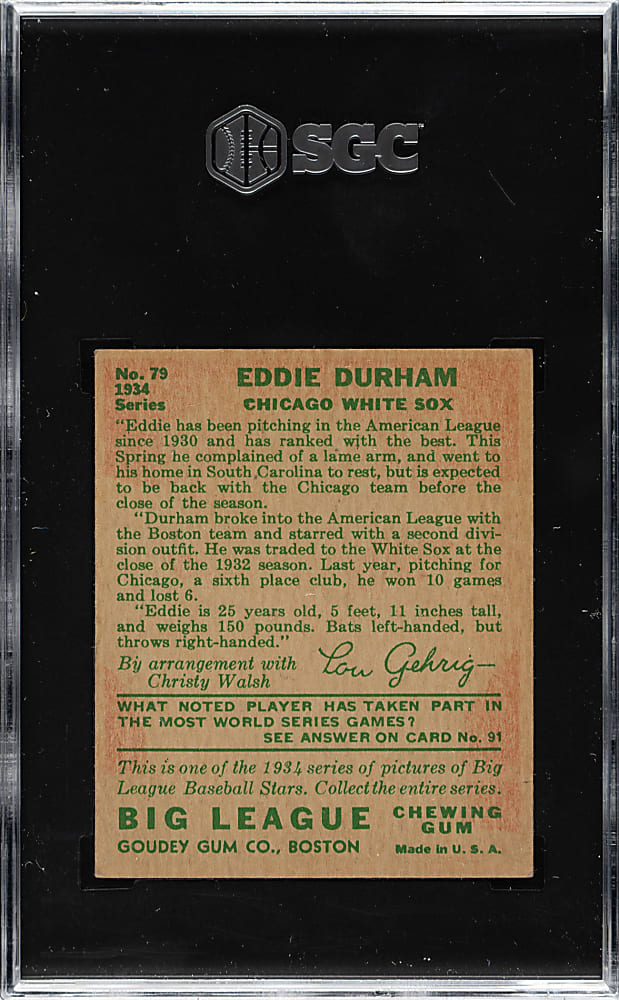 SGC
No. 79
1934
Series
EDDIE DURHAM
CHICAGO WHITE SOX
"Eddie has been pitching in the American League
since 1930 and has ranked with the best. This
Spring he complained of a lame arm, and went to
his home in South Carolina to rest, but is expected
to be back with the Chicago team before the
close of the season.
"Durham broke into the American League with
the Boston team and starred with a second divi-
sion outfit. He was traded to the White Sox at the
close of the 1932 season. Last year, pitching for
Chicago, a sixth place club, he won 10 games
and lost 6.
"Eddie is 25 years old, 5 feet, 11 inches tall,
and weighs 150 pounds. Bats left-handed, but
throws right-handed."
By arrangement with
Christy Walsh
Lou Gehrig
WHAT NOTED PLAYER HAS TAKEN PART IN
THE MOST WORLD SERIES GAMES?
SEE ANSWER ON CARD No. 91
This is one of the 1934 series of pictures of Big
League Baseball Stars. Collect the entire series.
BIG LEAGUE CHEWING GUM
GOUDEY GUM CO., BOSTON
Made in U. S. A.